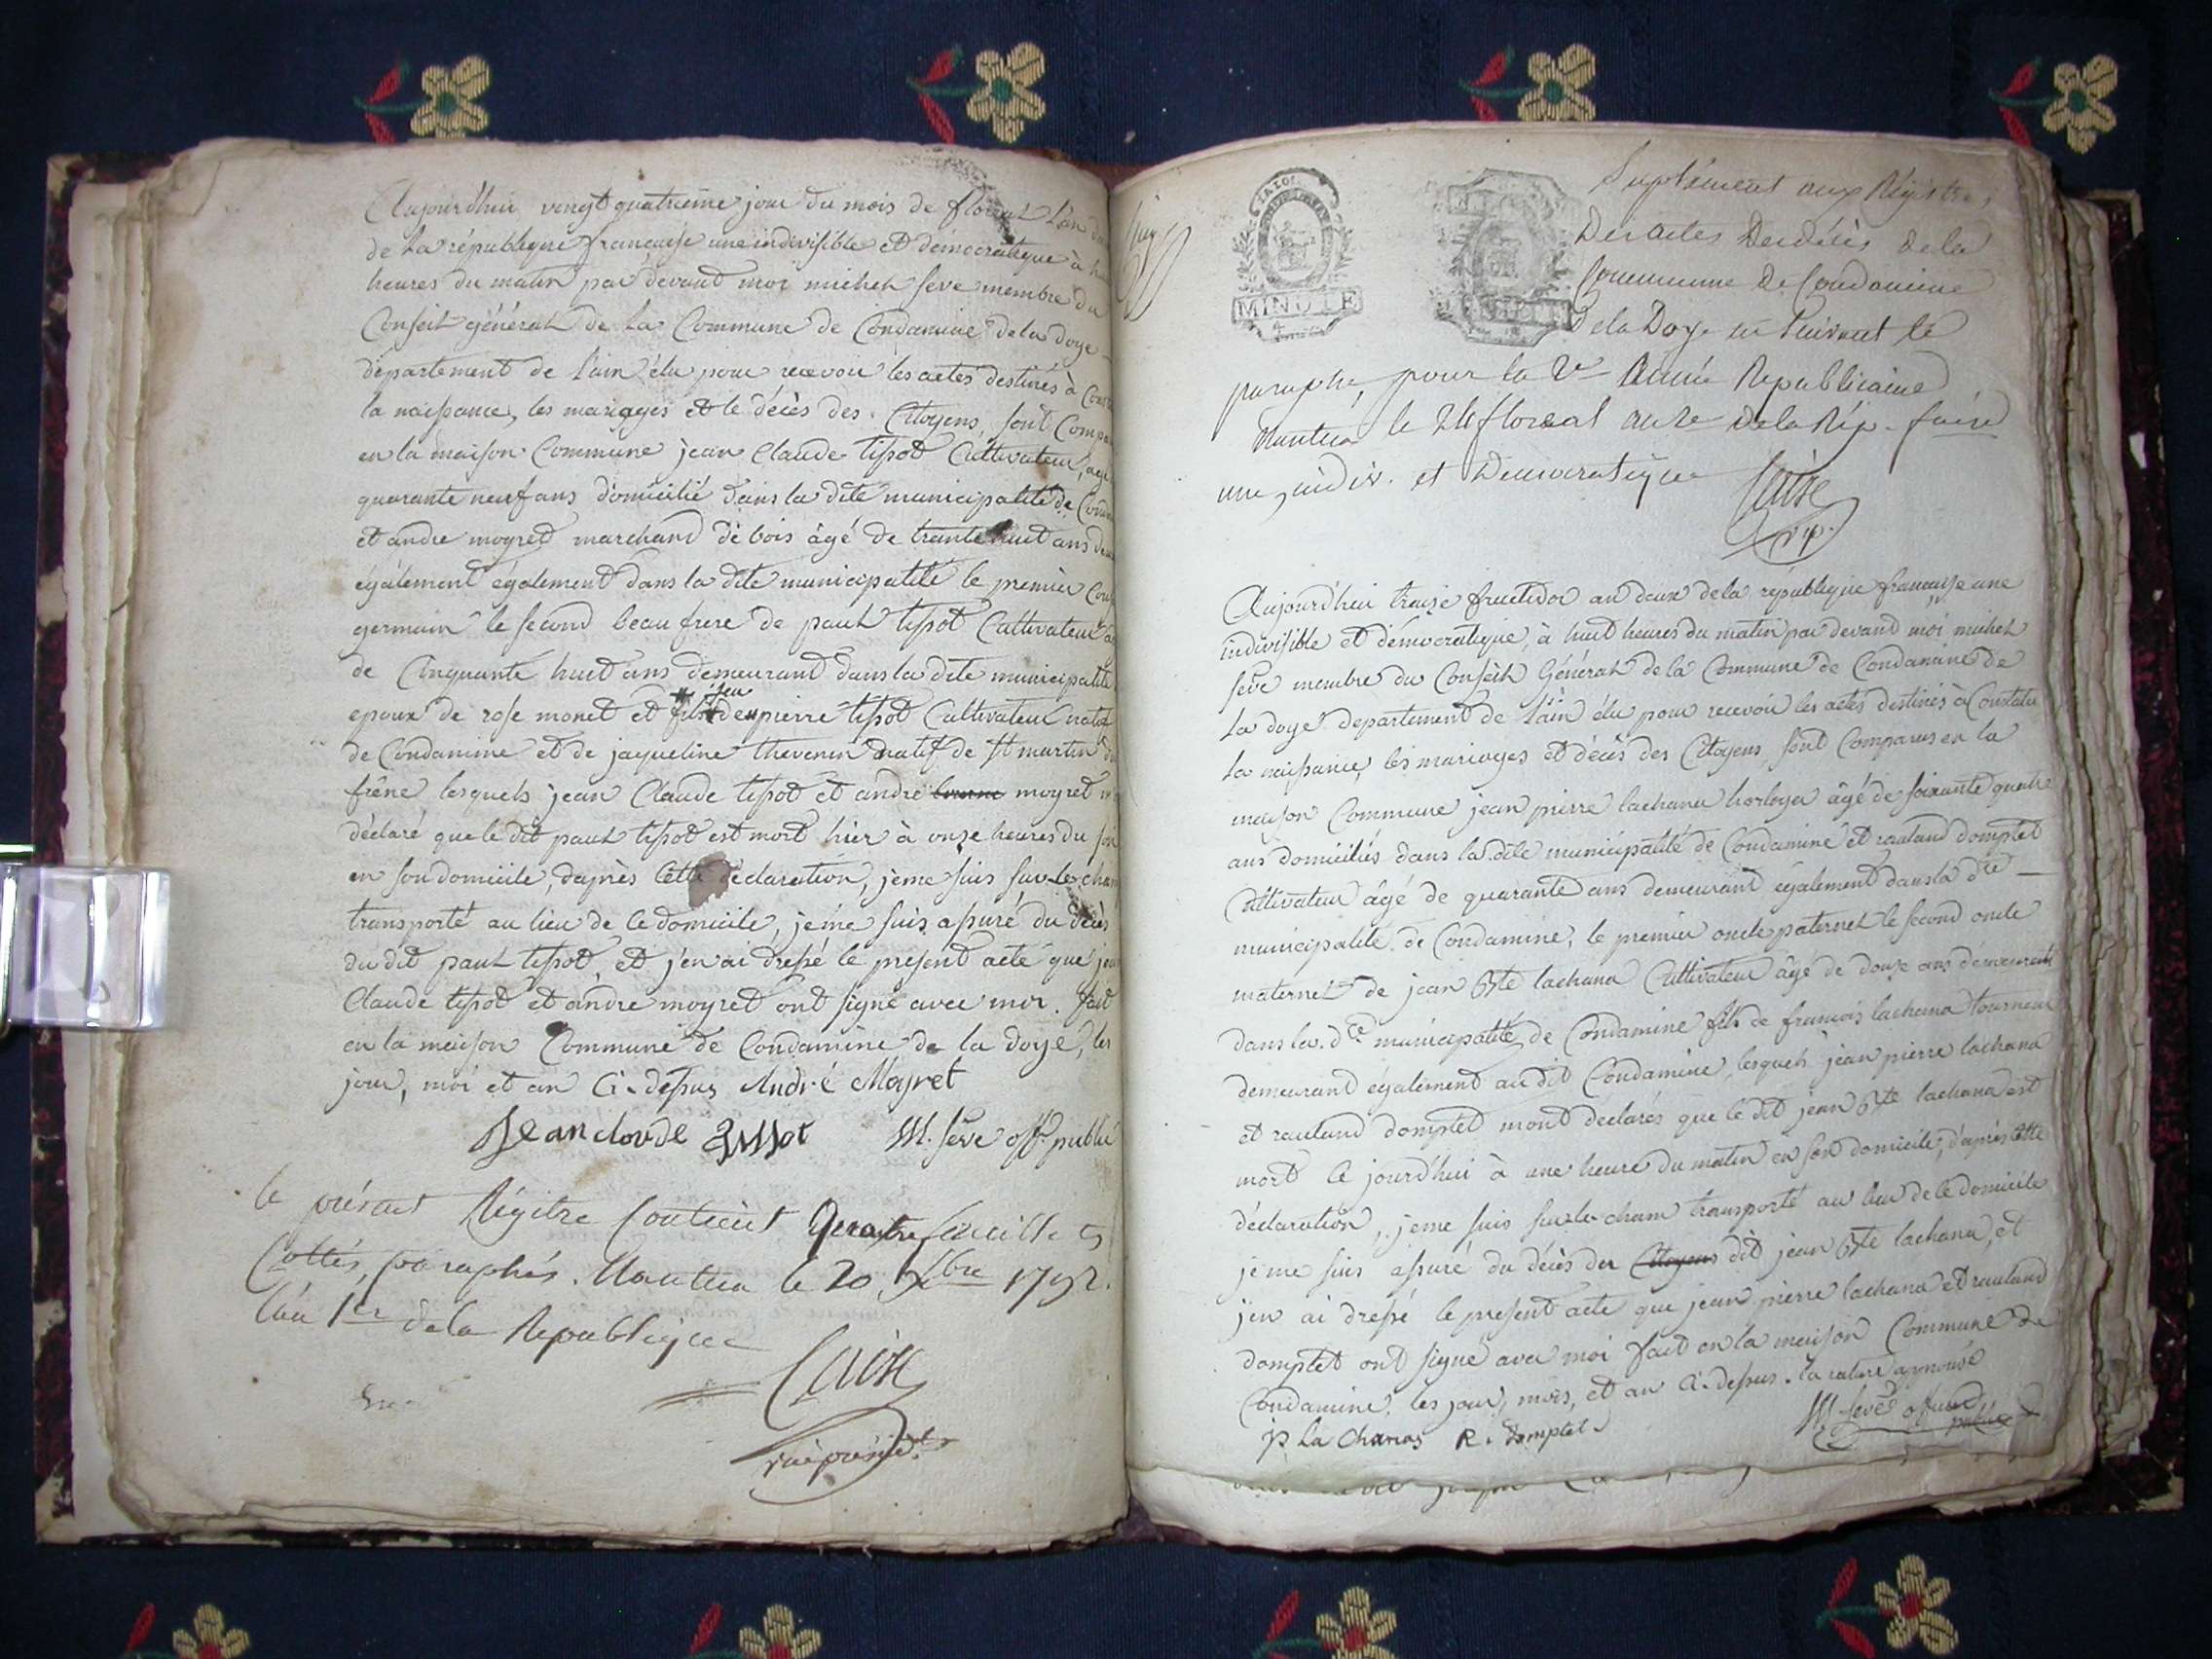 Aujourd'hui vengt quatrieme jour du mois de floreal l'an
de la république françoise une indivisible et démocratique à
heures du matin par devant moi michel seve membre du
Conseil général de la Commune de Condamine de la doye
département de l'ain élu pour recevoir les actes destinés à
la naissance, les mariages et le décès des Citoyens, sont
en la maison Commune jean Claude tissot Cultivateur, agé
quarante neuf ans domicilié dans la dite municipalité de
et andre moyret marchand de bois âgé de trante huit ans
également également dans la dite municipalité le premier
germain le second beau frere de paul tissot Cultivateur
de Cinquante huit ans demeurant dans la dite municipalité
epoux de rose monet et fils de feu pierre tissot Cultivateur natif
de Condamine et de jaqueline thevenin natif de st martin du
frêne lesquels jean Claude tissot et andre moyret
déclaré que le dit paul tissot est mort hier à onze heures du soir
en son domicile, daprès cette déclaration, je me suis sur le
transporté au lieu de ce domicile, je me suis assuré du décès
du dit paul tissot, et j'en ai dressé le present acte que
Claude tissot et andre moyret ont signé avec moi. fait
en la maison Commune de Condamine de la doye, les
jour, moi et an Ci-dessus André Moyret
Jean cloude M. seve off. public
le présent Régitre Contient Quatre feuillets
Cottés, paraphés. Nantua le 20 Xbre 1792.
l'an 1er de la Republique
vice présidt.
MINUTE
Suplément aux Régistres
Des actes Des décès de la
Commune De Condamine
De la Doye
paraphé, pour la 2e Année Republicaine
Nantua le 24 floreal an 2e de la Rép. fçaise
une, indiv. et Democratique
vp.
Aujourd'hui traise fructidor an deux de la république française une
indivisible et démocratique, à huit heures du matin par devand moi michel
seve membre du Conseil Général de la Commune de Condamine de
la doye departement de l'ain élu pour recevoir les actes destinés à Constater
la naissance, les mariages et décès des Citoyens sont Comparus en la
maison Commune jean pierre lachana horloger âgé de soixante quatre
ans domiciliés dans la dite municipalité de Condamine et rauland domptet
Cultivateur âgé de quarante ans demeurant également dans la dte
municipalité de Condamine, le premier oncle paternel le second oncle
maternel de jean Bte lachana Cultivateur âgé de douze ans demeurant
dans la dte municipalité de Condamine fils de francois lachana tourneur
demeurant également au dit Condamine, lesquels jean pierre lachana
et rauland domptet mont déclarés que le dit jean Bte lachana est
mort Ce jourd'hui à une heure du matin en son domicile, d'après cette
déclaration, je me suis sur le cham transporté au lieu de ce domicile
je me suis assuré du décès du Citoyens dit jean Bte lachana, et
j'en ai dressé le present acte que jean pierre lachana et rauland
domptet ont signé avec moi fait en la maison Commune de
Condamine, les jour, mois, et an Ci-dessus. la rature aprouvé
jp La Chanas R. Domptet M. seve officier public